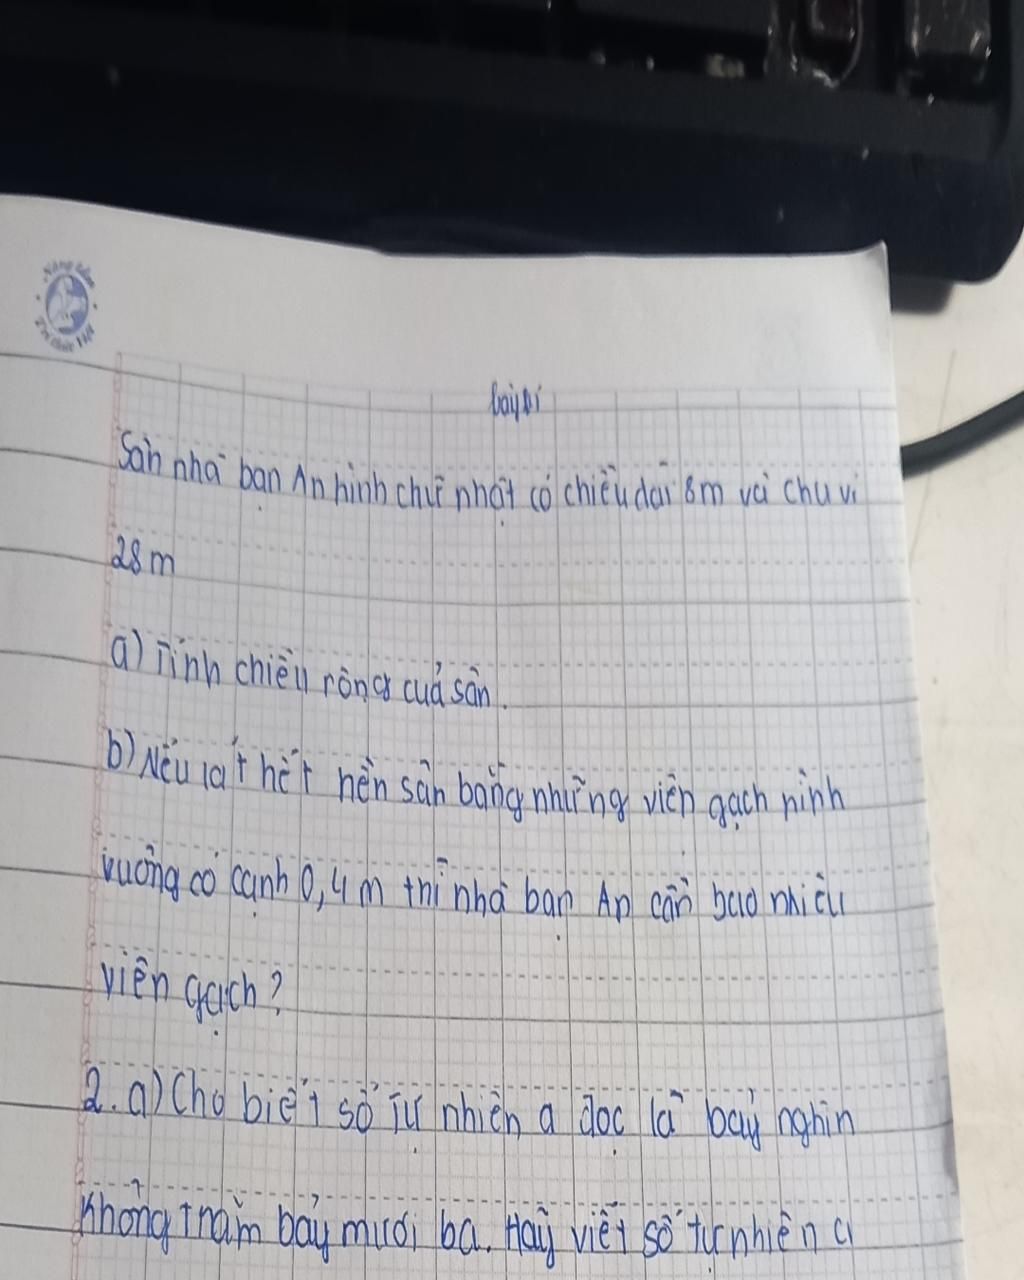 Nâng tầm
Tri thức Việt
Sàn nhà bạn An hình chữ nhật có chiều dài 8m và chu vi
28 m
a) Tính chiều rộng của sàn.
b) Nếu lát hết nền sàn bằng những viên gạch hình
vuông có cạnh 0,4 m thì nhà bạn An cần bao nhiêu
viên gạch?
2. a) Cho biết số tự nhiên a đọc là bảy nghìn
không trăm bảy mươi ba. Hãy viết số tự nhiên a